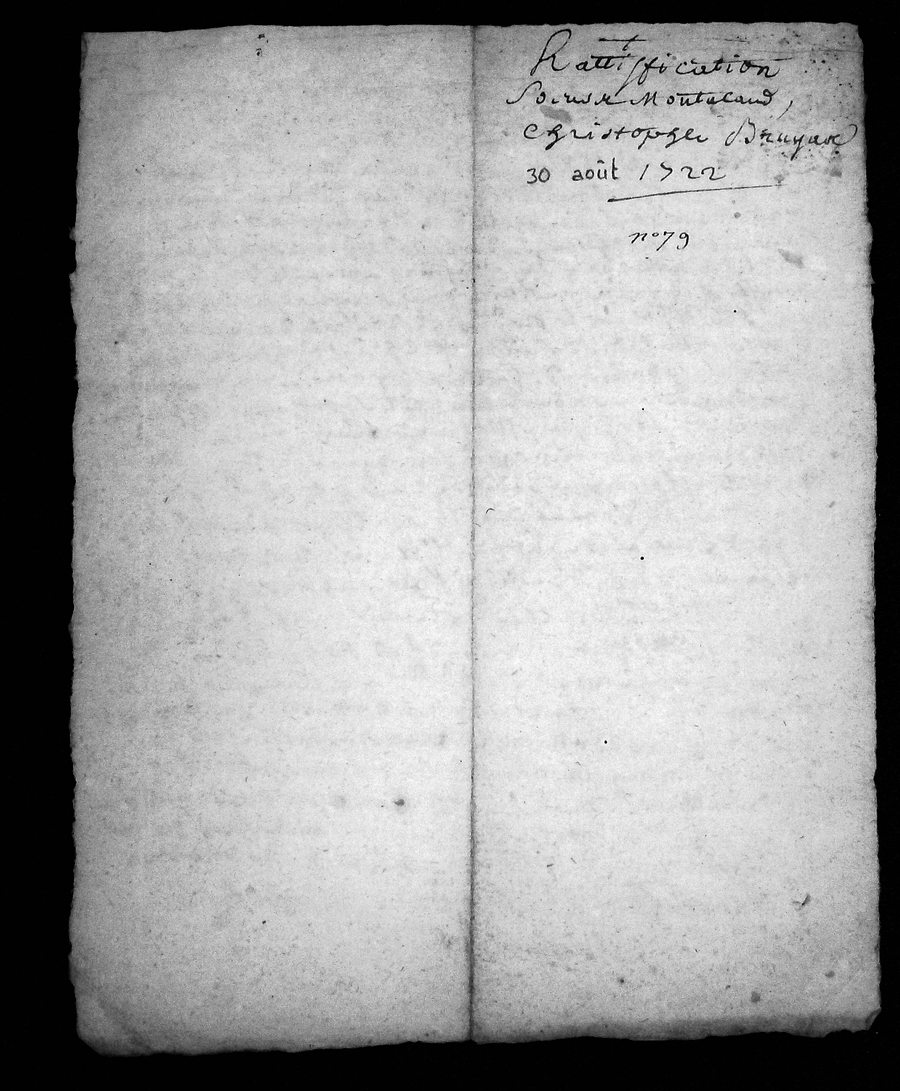 Rattiffication
Soeurs Montaland,
Christophe Bruyas
30 août 1722
n° 79